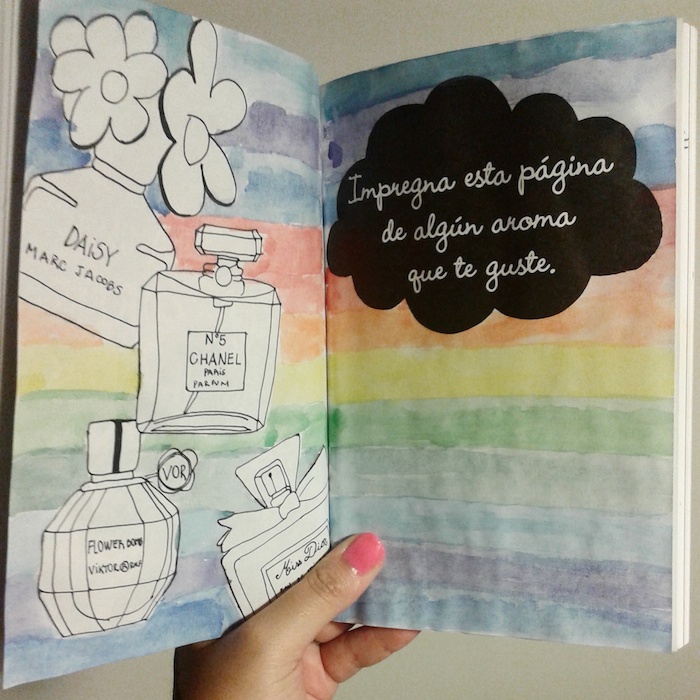 DAiSY
MARC JACOBS
N°5
CHANEL
PARIS
PARNM
VOR
FLOWER BOMB
ViKTOR@RNF
Miss Dio
Impregna esta página
de algún aroma
que te guste.